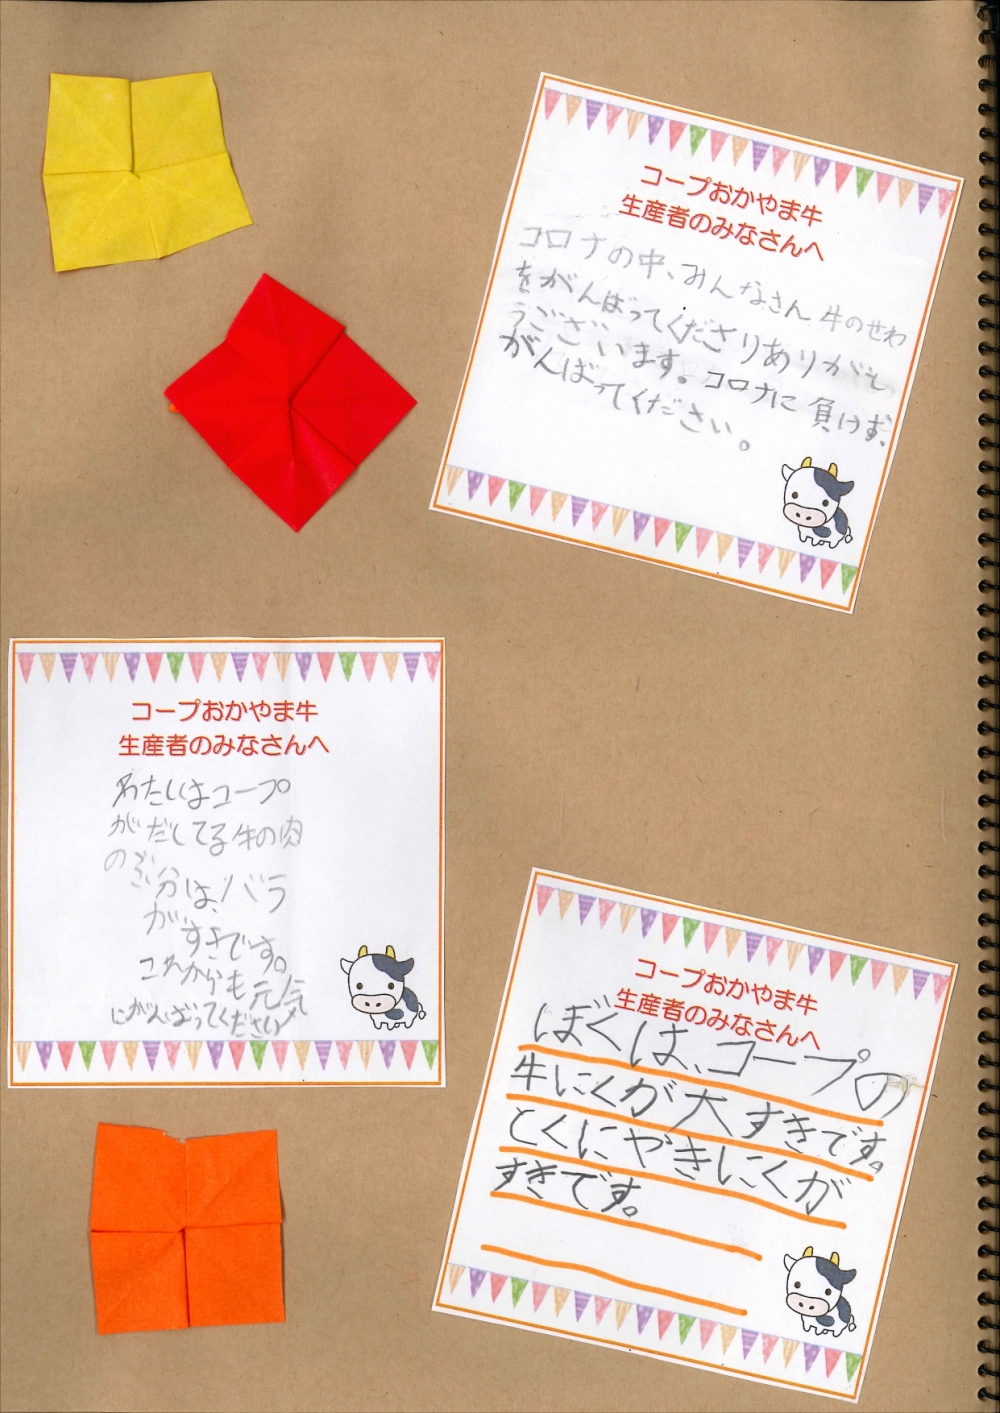 コープおかやま牛
生産者のみなさんへ
コロナの中、みんなさん 牛のせわ
をがんばってくださりありがと
うございます。コロナに負けず、
がんばってください。
コープおかやま牛
生産者のみなさんへ
わたしはコープ
がだしてる牛の肉
のぶい分は、バラ
がすきです。
これからも元気
にがんばってください
コープおかやま牛
生産者のみなさんへ
ぼくは、コープの
牛にくが大すきです。
とくにやきにくが
すきです。